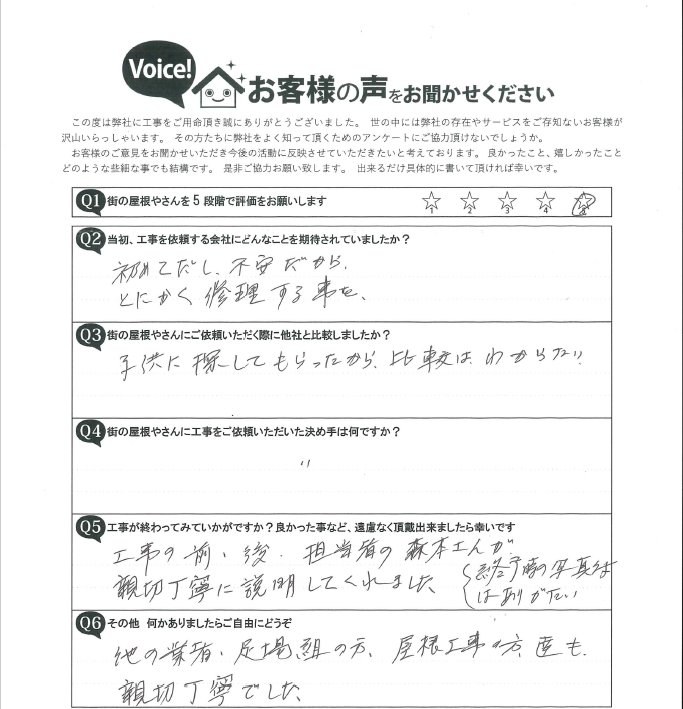 Voice!
お客様の声をお聞かせください
この度は弊社に工事をご用命頂き誠にありがとうございました。 世の中には弊社の存在やサービスをご存知ないお客様が
沢山いらっしゃいます。 その方たちに弊社をよく知って頂くためのアンケートにご協力頂けないでしょうか。
お客様のご意見をお聞かせいただき今後の活動に反映させていただきたいと考えております。 良かったこと、嬉しかったこと
どのような些細な事でも結構です。 是非ご協力お願い致します。 出来るだけ具体的に書いて頂ければ幸いです。
Q1 街の屋根やさんを5段階で評価をお願いします
1 2 3 4 5
Q2 当初、工事を依頼する会社にどんなことを期待されていましたか?
初めてだし、不安だから、
とにかく修理する事を、
Q3 街の屋根やさんにご依頼いただく際に他社と比較しましたか?
子供に探してもらったから、比較は、わからない
Q4 街の屋根やさんに工事をご依頼いただいた決め手は何ですか?
〃
Q5 工事が終わってみていかがですか?良かった事など、遠慮なく頂戴出来ましたら幸いです
工事の前、後、担当者の森本さんが
親切丁寧に説明してくれました
終了時の写真
はありがたい
Q6 その他 何かありましたらご自由にどうぞ
他の業者、足場組の方、屋根工事の方、も、
親切丁寧でした、